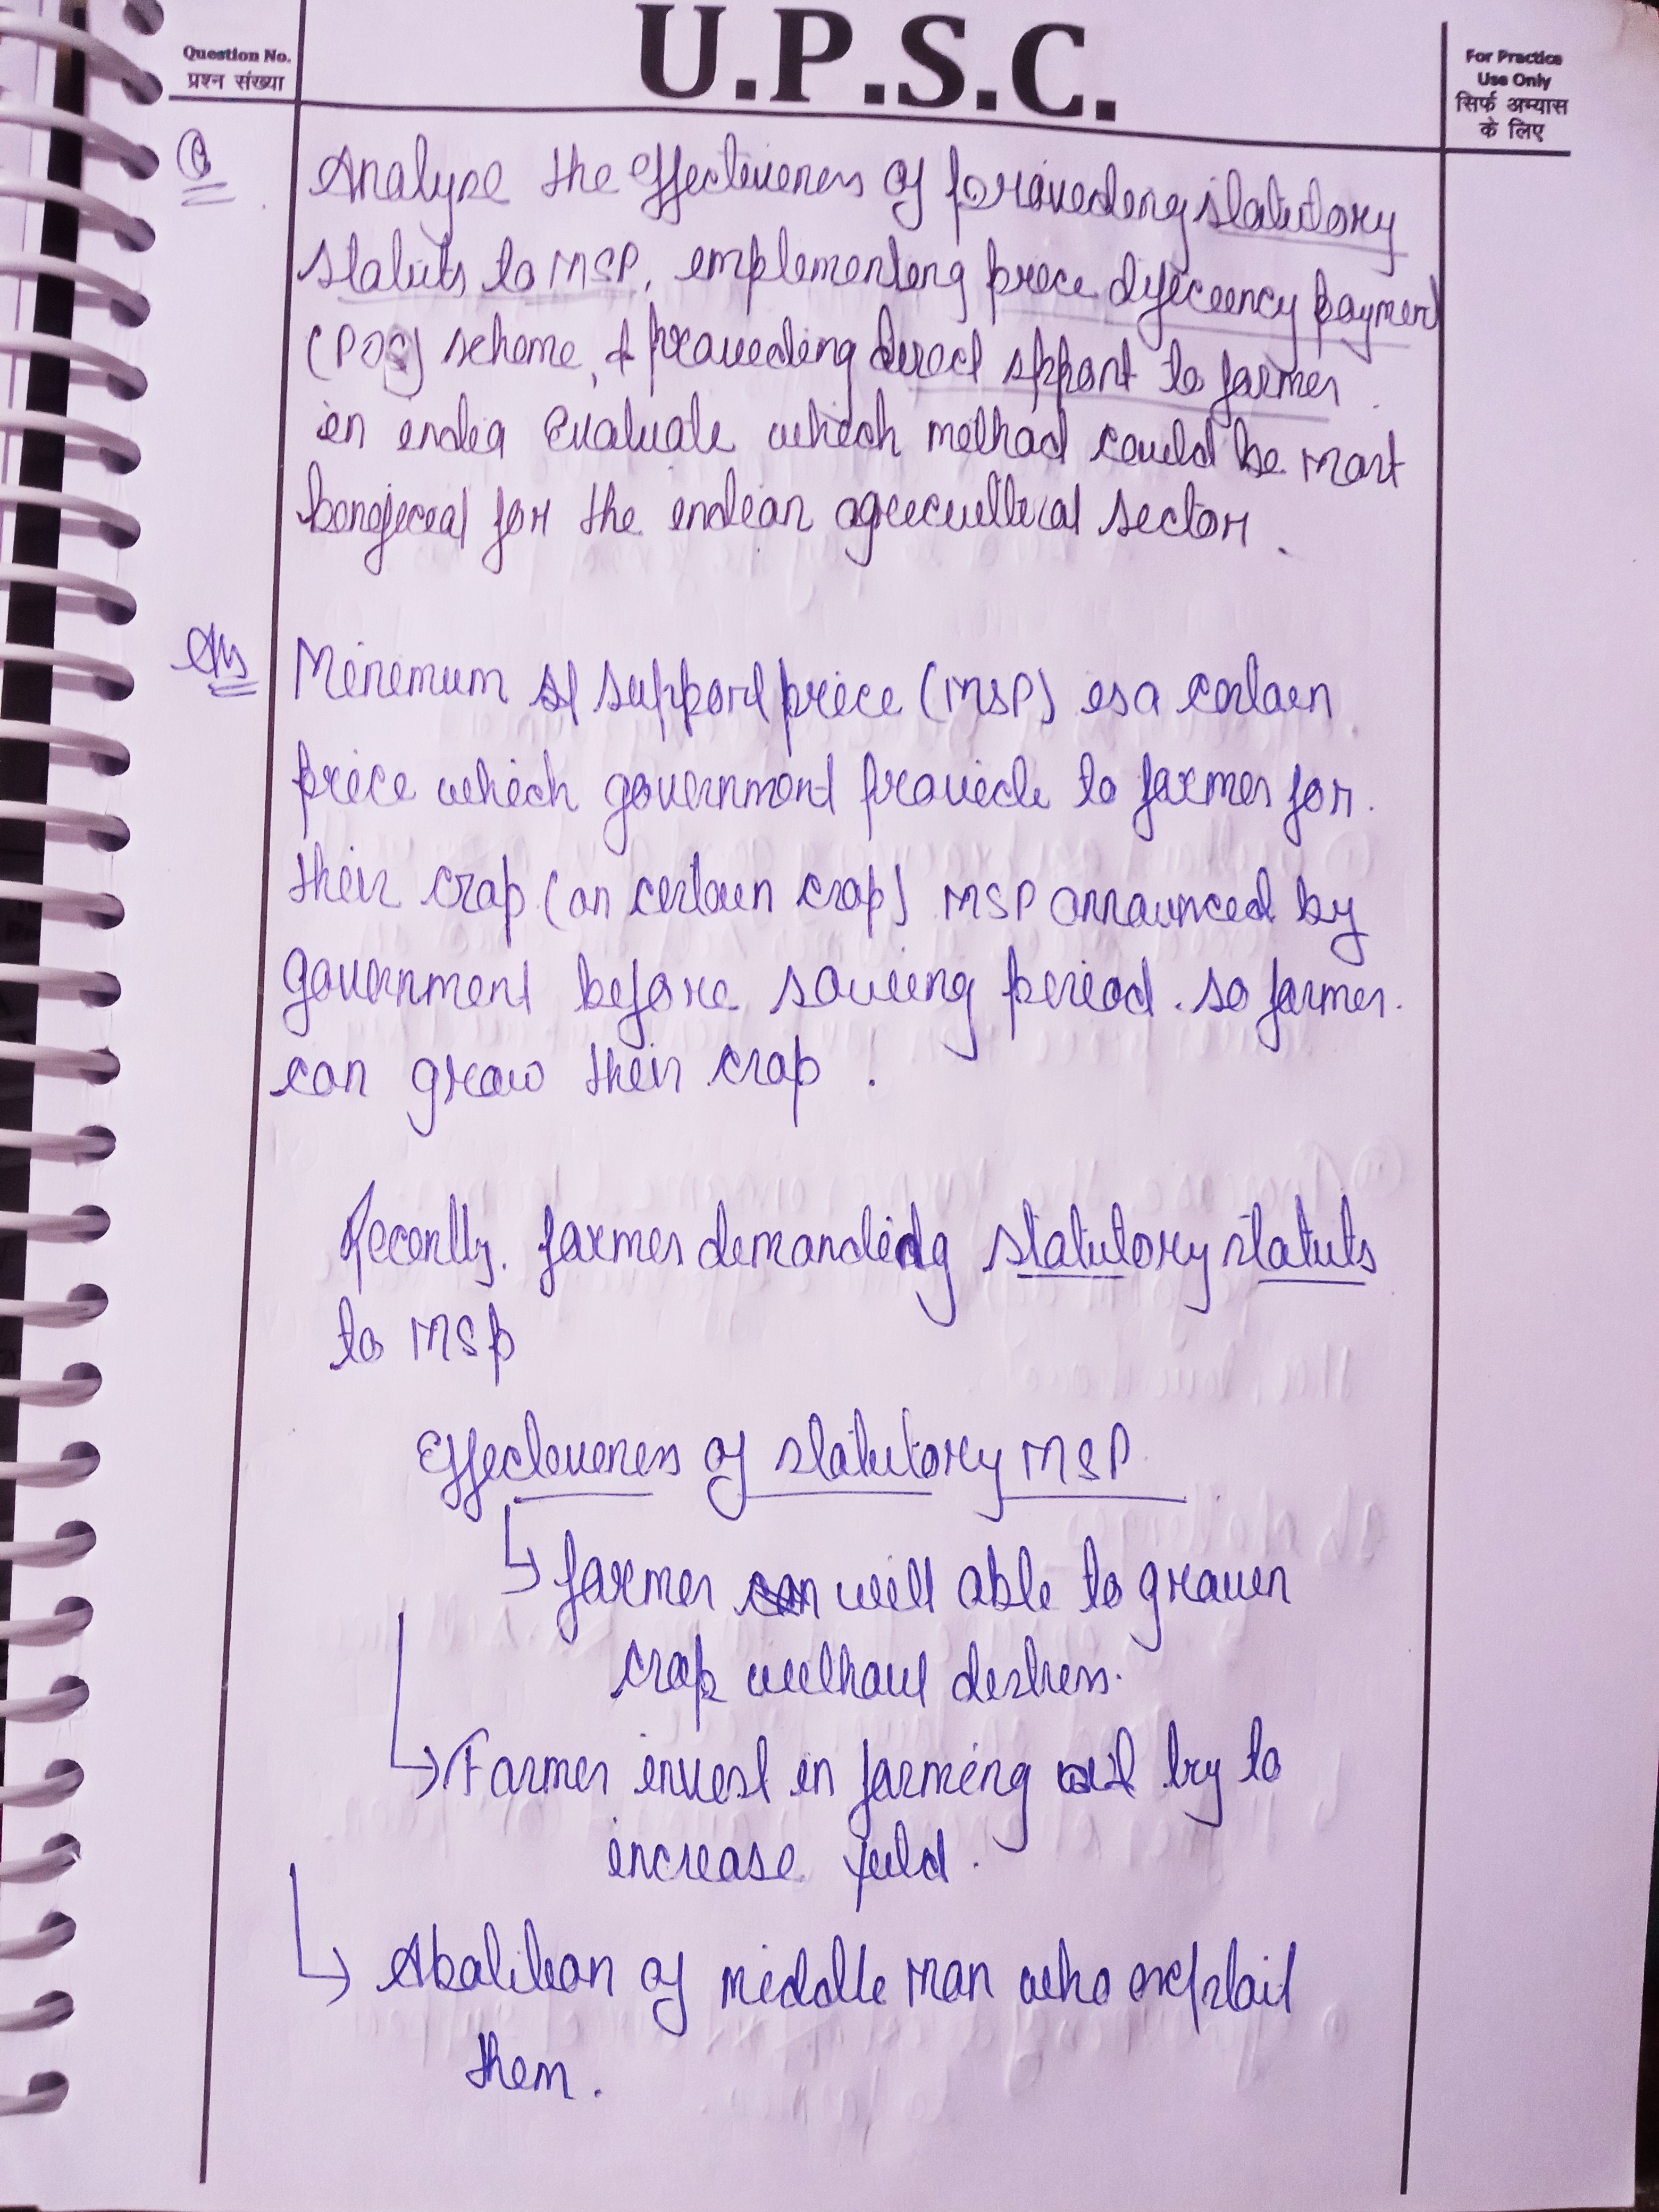 Question No.
प्रश्न संख्या
U.P.S.C.
For Practice
Use Only
सिर्फ अभ्यास
के लिए
Q
Analyse the effectiveness of providing statutory
status to MSP, implementing price deficiency payment
(PDS) scheme, & providing direct spport to farmer
in india Evaluate which method could be most
beneficial for the indian agricultural sector.
Ans
Minimum support price (MSP) is a certain
price which government provide to farmer for
their crop (on certain crop) MSP announced by
government before sowing period. so farmer
can grow their crop.
Recently, farmer demanding statutory statuts
to MSP
Effectiveness of statutory MSP
↳ farmer will able to grower
crop without distress.
↳ Farmer invest in farming and try to
increase yield.
↳ Abolition of middle man who explait
them.